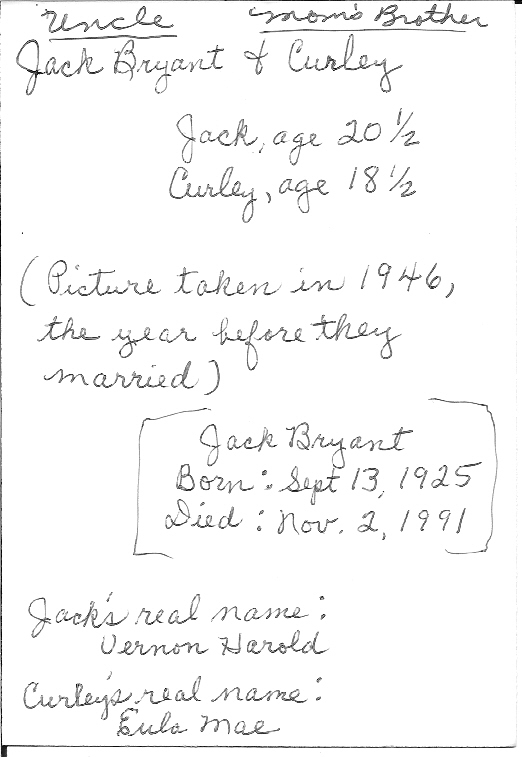 Uncle Mom's Brother
Jack Bryant & Curley
Jack, age 20 1/2
Curley, age 18 1/2
(Picture taken in 1946,
the year before they
married)
Jack Bryant
Born: Sept 13, 1925
Died: Nov. 2, 1991
Jack's real name:
Vernon Harold
Curley's real name:
Eula Mae